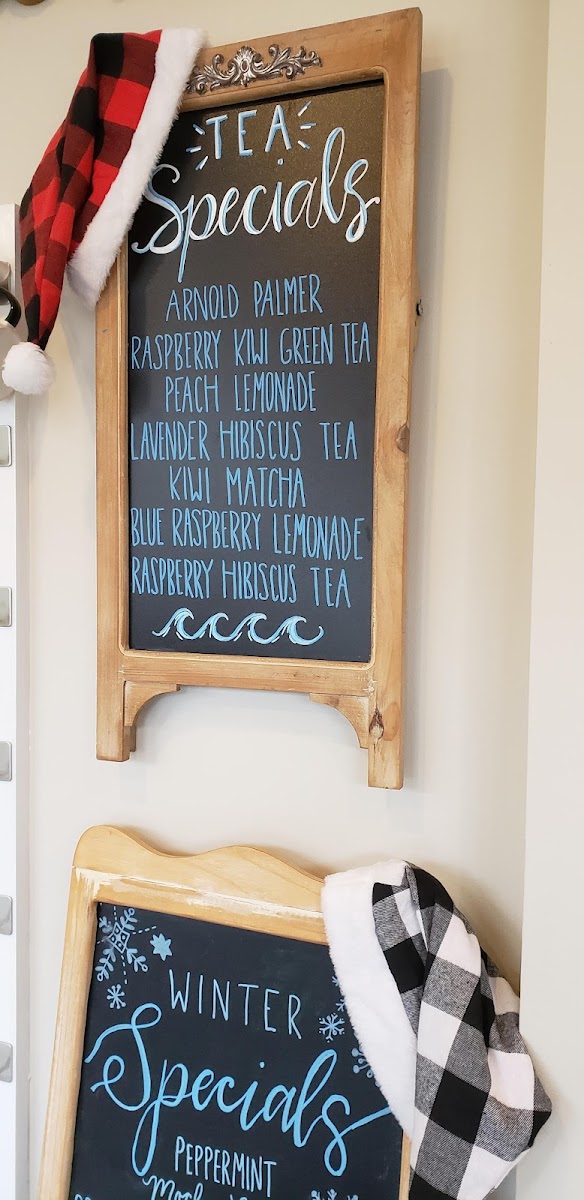 TEA
Specials
ARNOLD PALMER
RASPBERRY KIWI GREEN TEA
PEACH LEMONADE
LAVENDER HIBISCUS TEA
KIWI MATCHA
BLUE RASPBERRY LEMONADE
RASPBERRY HIBISCUS TEA
WINTER
Specials
PEPPERMINT